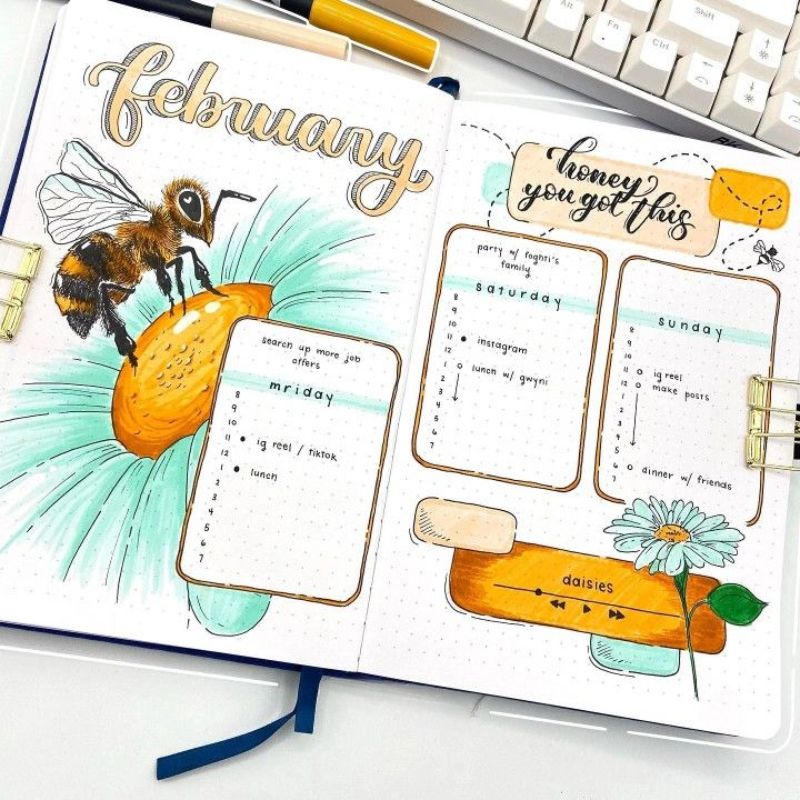 february
search up more job
offers
mriday
8
9
10
11 ig reel / tiktok
12
1 lunch
2
3
4
5
6
7
honey
you got this
party w/ foghti's
family
saturday
8
9
10
11 instagram
12
1 lunch w/ gwyni
2
3
4
5
6
7
sunday
8
9
10
11 ig reel
12 make posts
1
2
3
4
5
6 dinner w/ friends
7
daisies
Alt
Fn
Ctrl
Shift